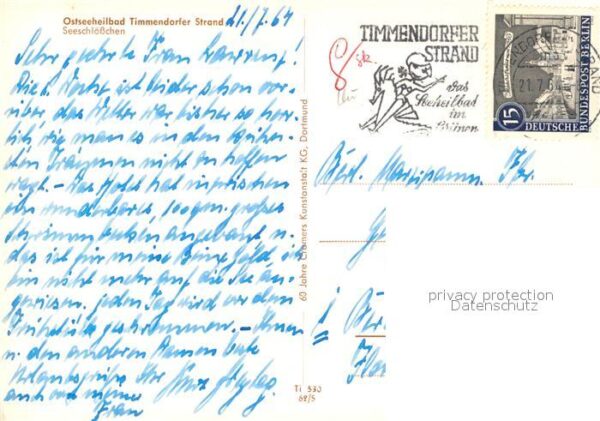 Ostseeheilbad Timmendorfer Strand
Seeschlößchen
21./7.64
Sehr geehrte Frau
Die 1. Woche ist leider schon vor-
über das Wetter war bisher so herr-
lich, wie man es in den kühn-
sten Träumen nicht zu hoffen
wagt. – Das Hotel hat inzwischen
ein wunderbares, 100 qm großes
Schwimmbecken angebaut u.
das ist für meine Beine Gold, ich
bin nicht mehr auf die See an-
gewiesen. Jeden Tag wird vor dem
Frühstück geschwommen. – Ihnen
u. den anderen Damen beste
Urlaubsgrüße Ihr
auch meine
Frau
60 Jahre Cramers Kunstanstalt KG, Dortmund
Ti 530
68/5
TIMMENDORFER
STRAND
das
Seeheilbad
im
Grünen
21.7.64
15
DEUTSCHE
BUNDESPOST BERLIN
Berl. Marzipanm. Fbr.
privacy protection
Datenschutz